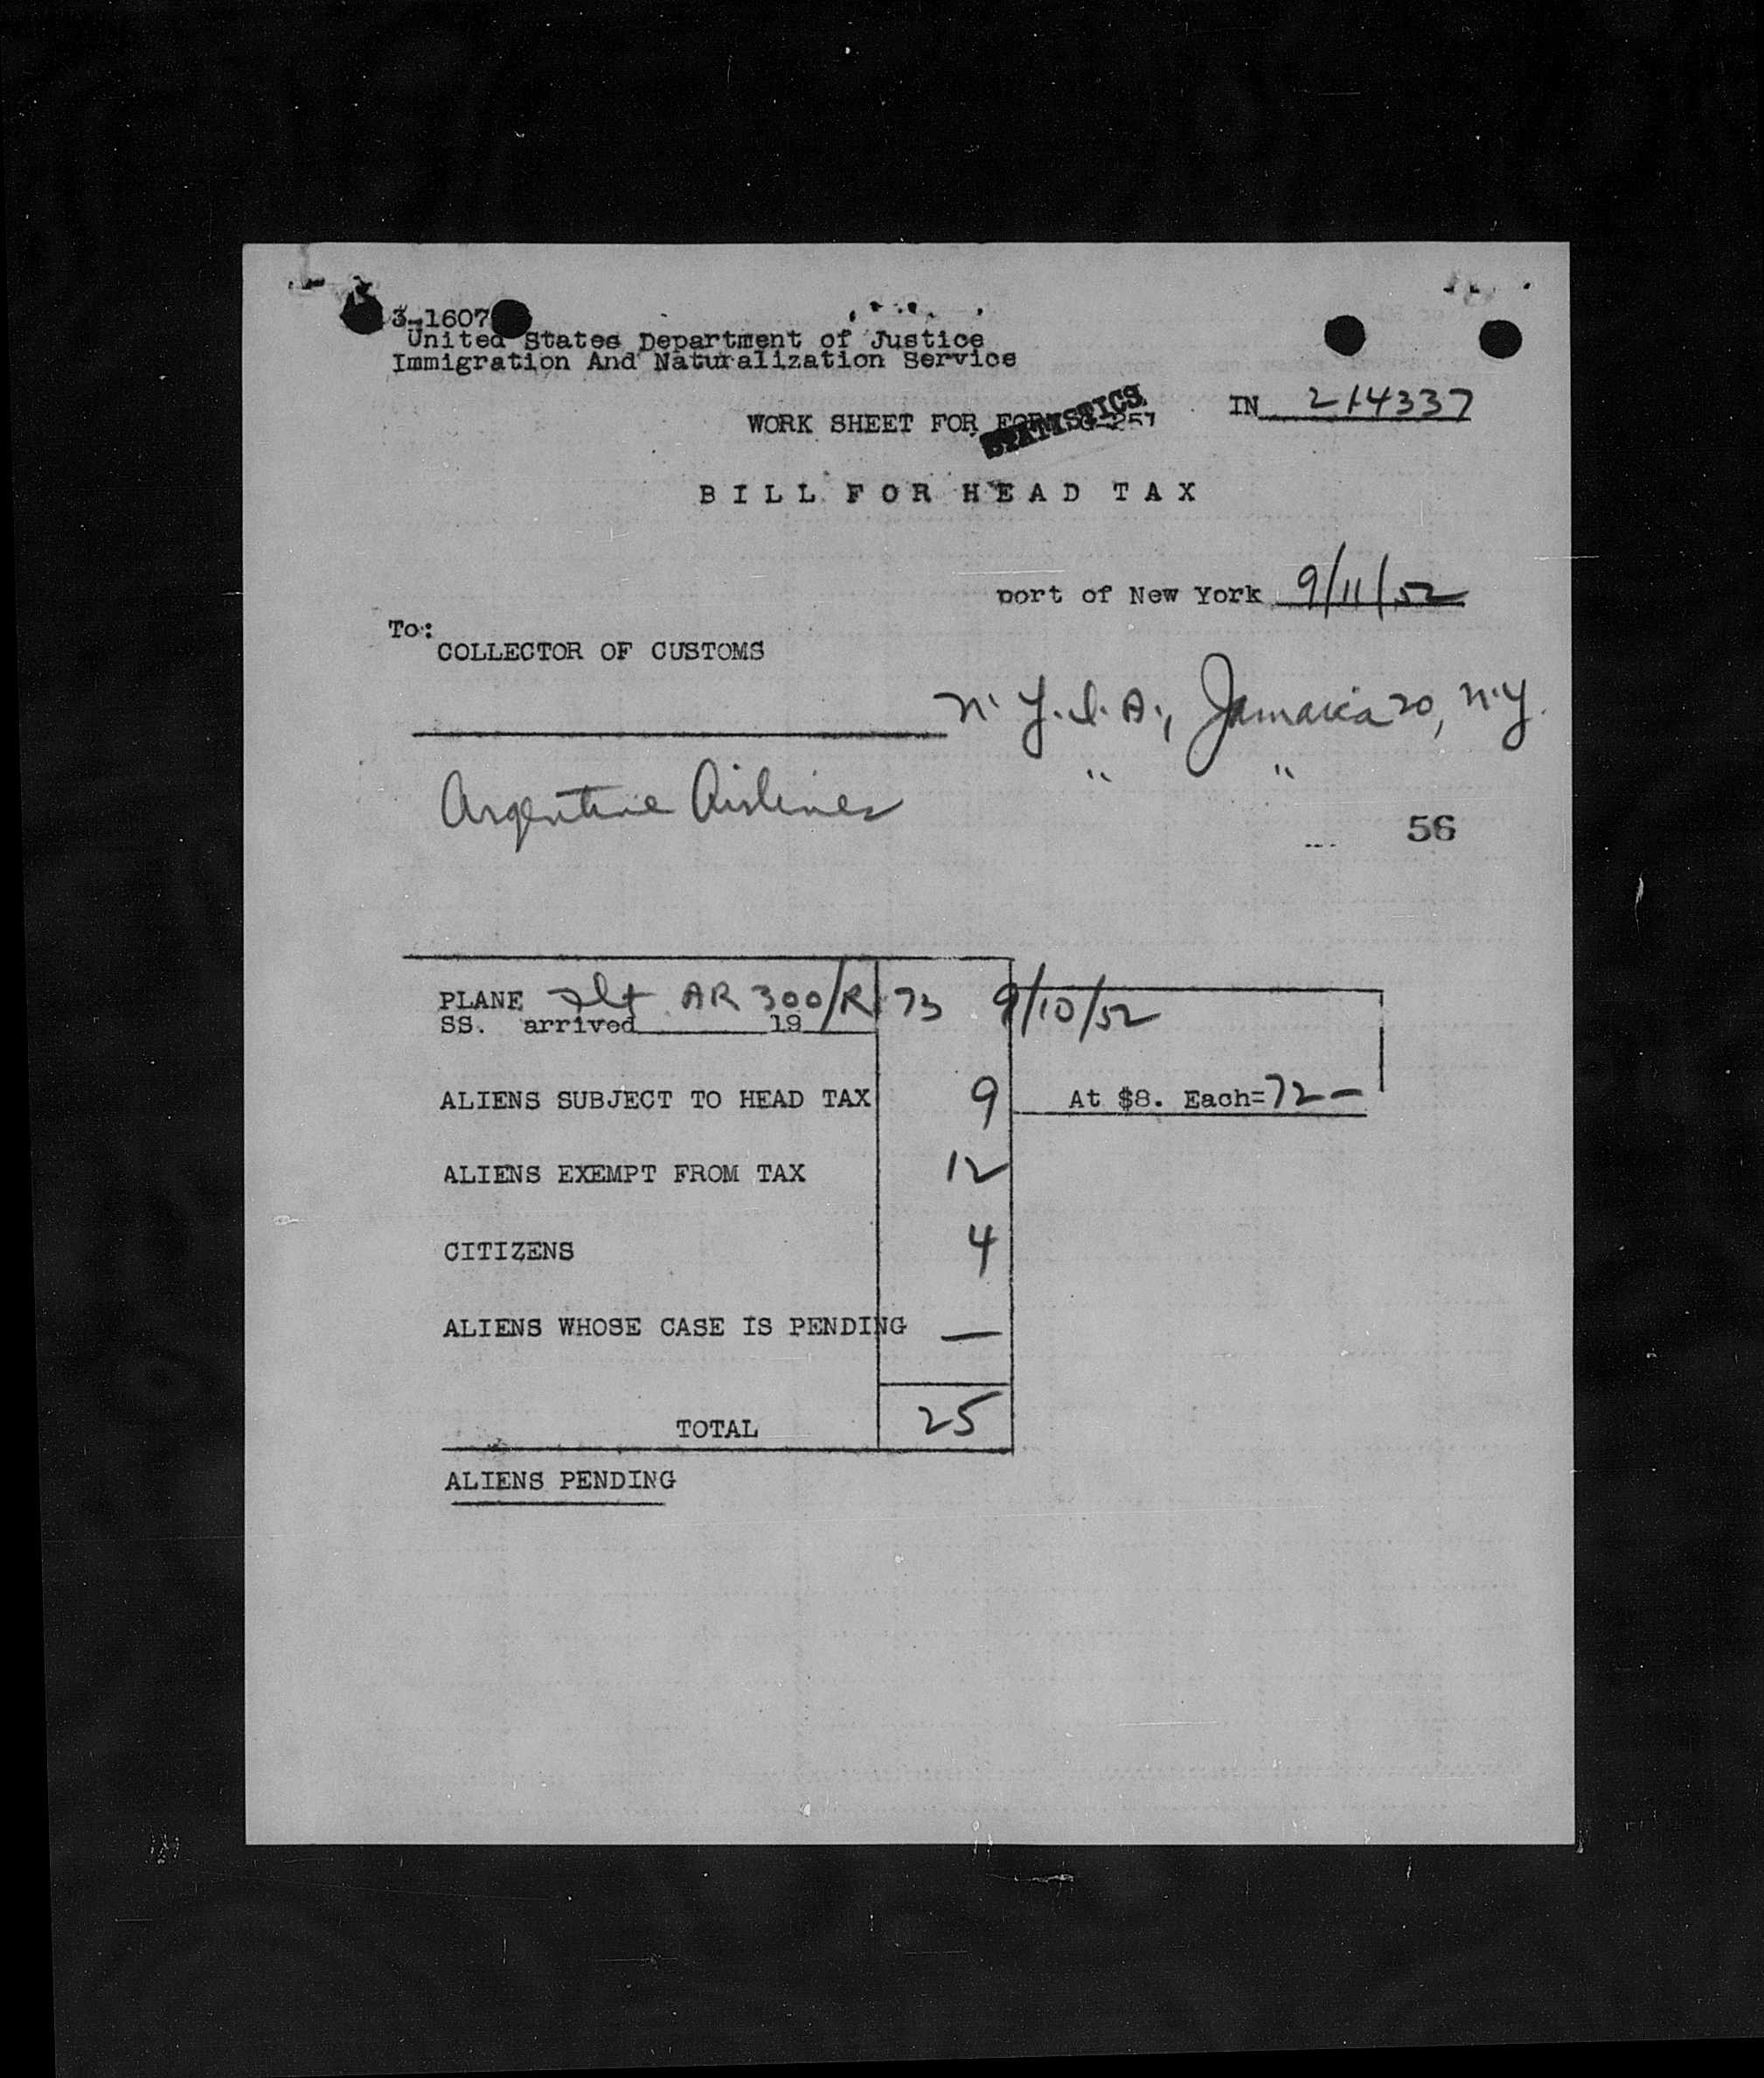 3-1607
United States Department of Justice
Immigration And Naturalization Service
IN 214337
WORK SHEET FOR FORM G-257
STATISTICS
BILL FOR HEAD TAX
port of New York 9/11/52
To:
COLLECTOR OF CUSTOMS
N.Y.I.A., Jamaica 20, N.Y.
Argentine Airlines " "
56
PLANE Flt AR 300/R 73 9/10/52
SS. arrived 19
ALIENS SUBJECT TO HEAD TAX 9 At $8. Each= 72 —
ALIENS EXEMPT FROM TAX 12
CITIZENS 4
ALIENS WHOSE CASE IS PENDING —
TOTAL 25
ALIENS PENDING